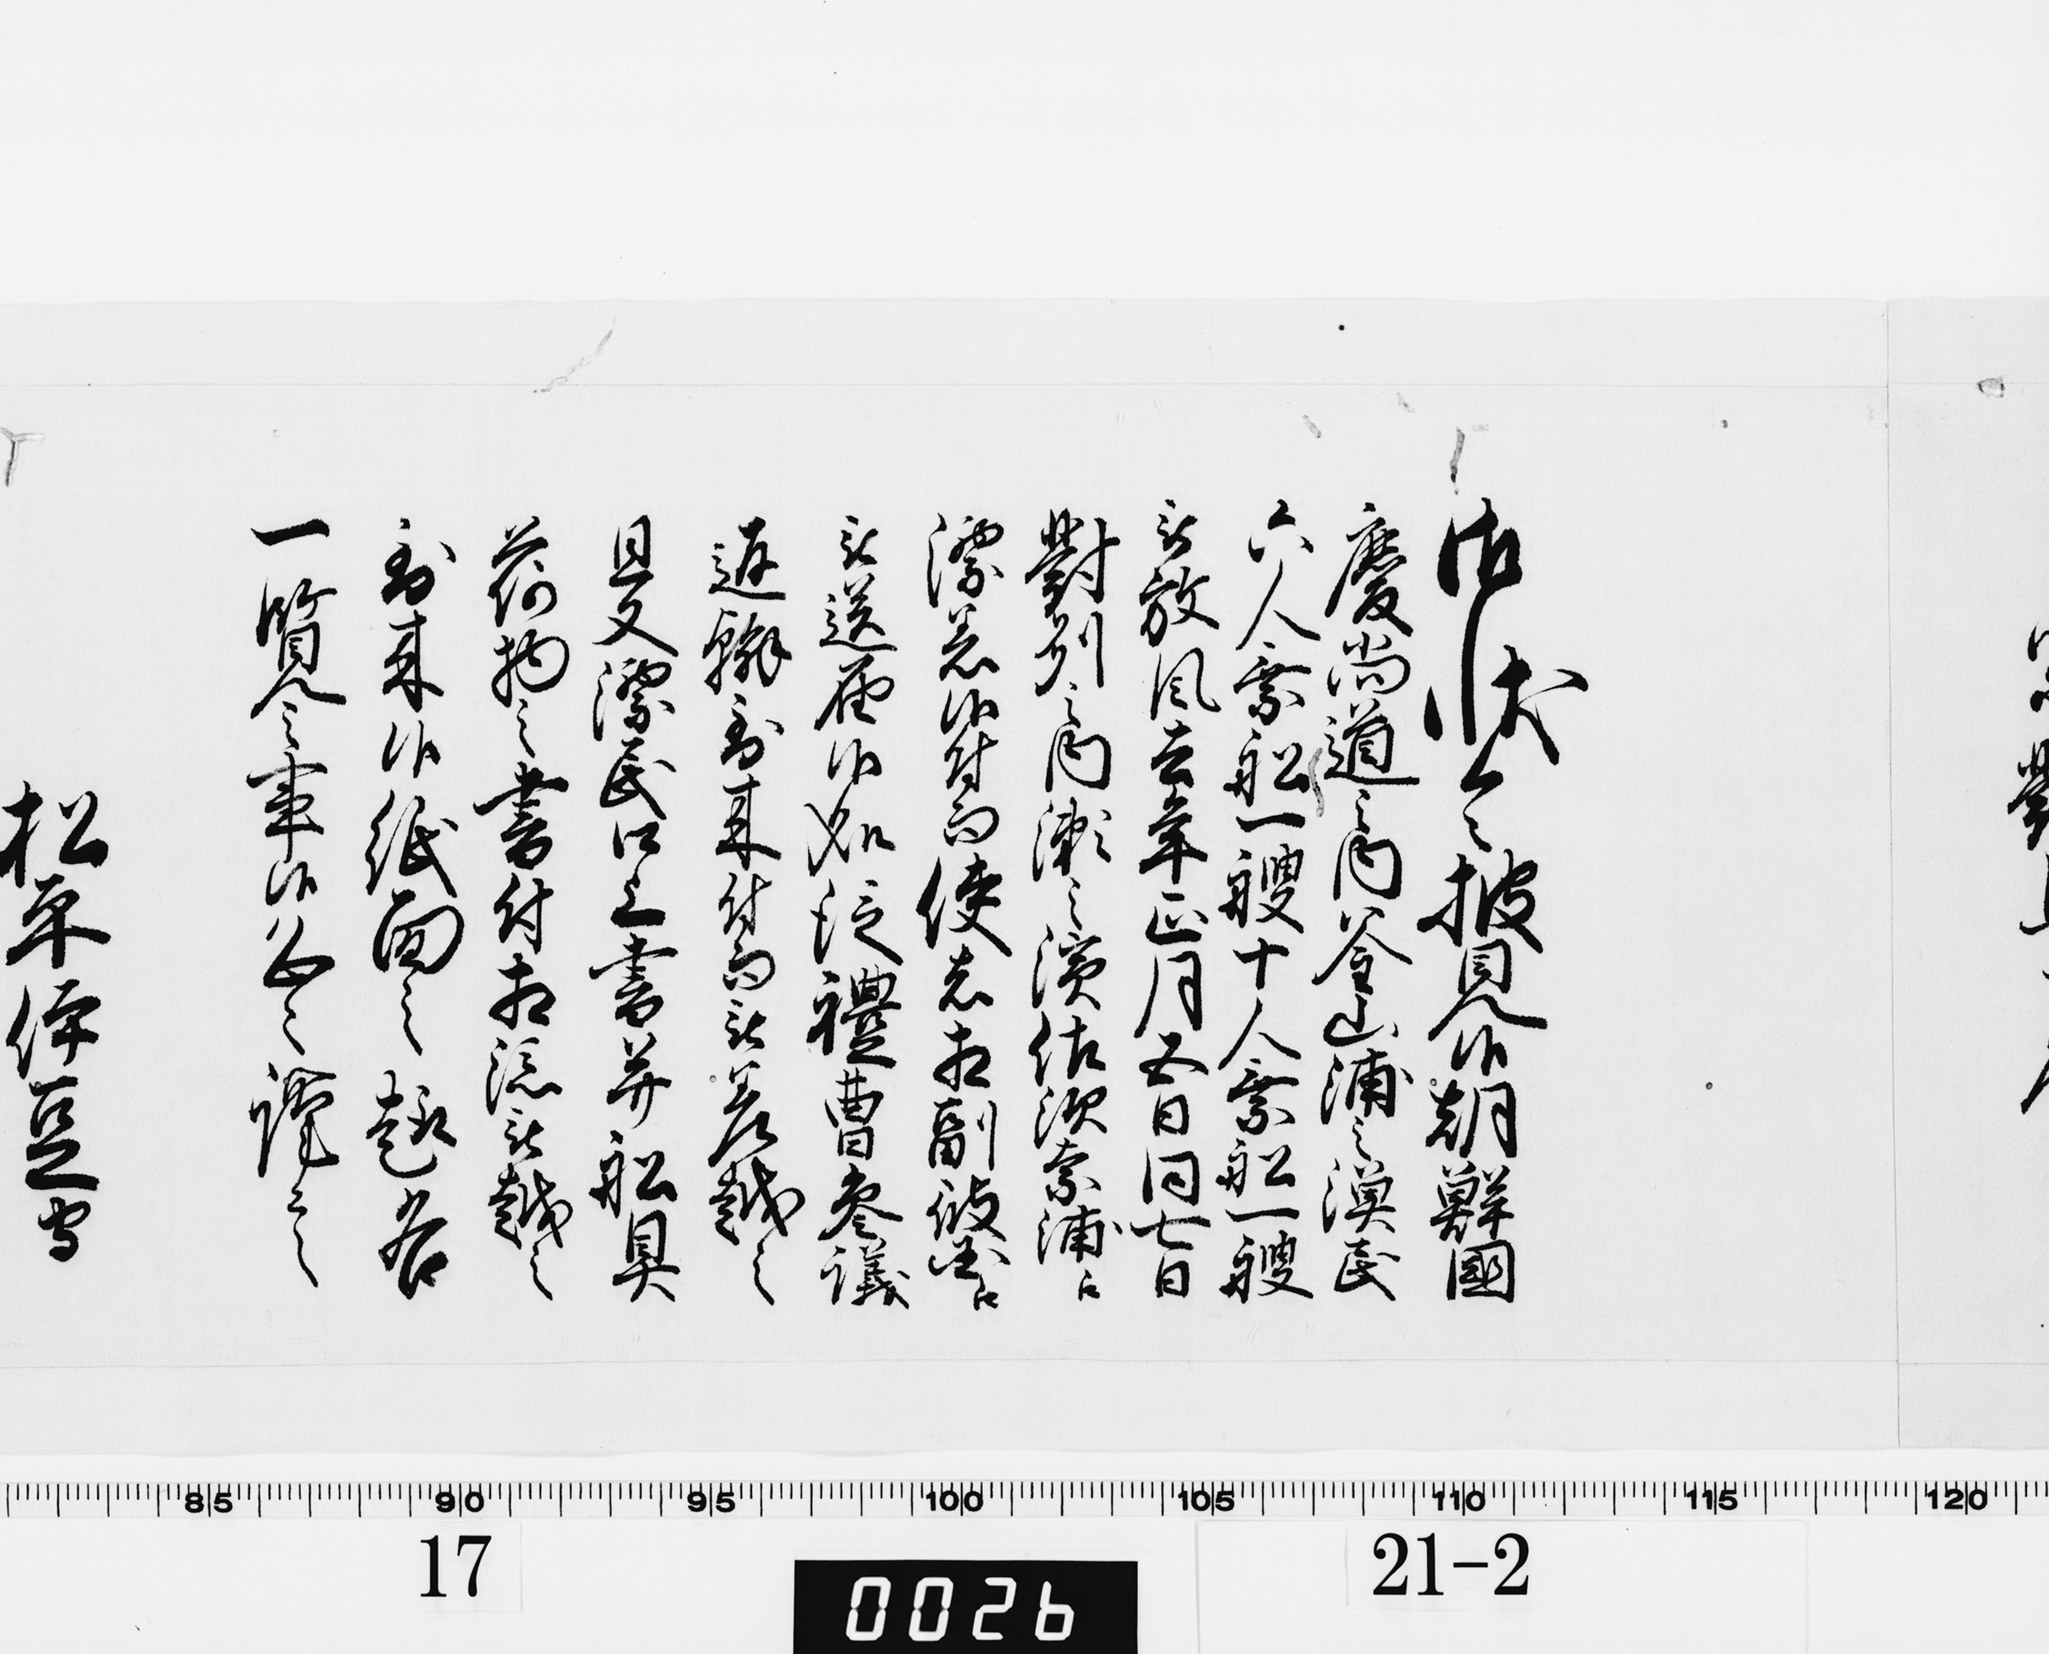 御状令披見候朝鮮國
慶尚道之内釜山浦之漁民
六人乗舩一艘十人乗舩一艘
被放風去年正月五日同七日
對州之内瀬之濱佐須奈浦江
漂着候付而使者相副彼国江
被送届候処従禮曹参議
返翰到来付而被差越之
且又漂民口上書并舩具
荷物之書付相添被越之
到来候紙面之趣各
一覧令之事候恐々謹言
松平伊豆守
85 90 95 100 105 110 115 120
17
0026
21-2